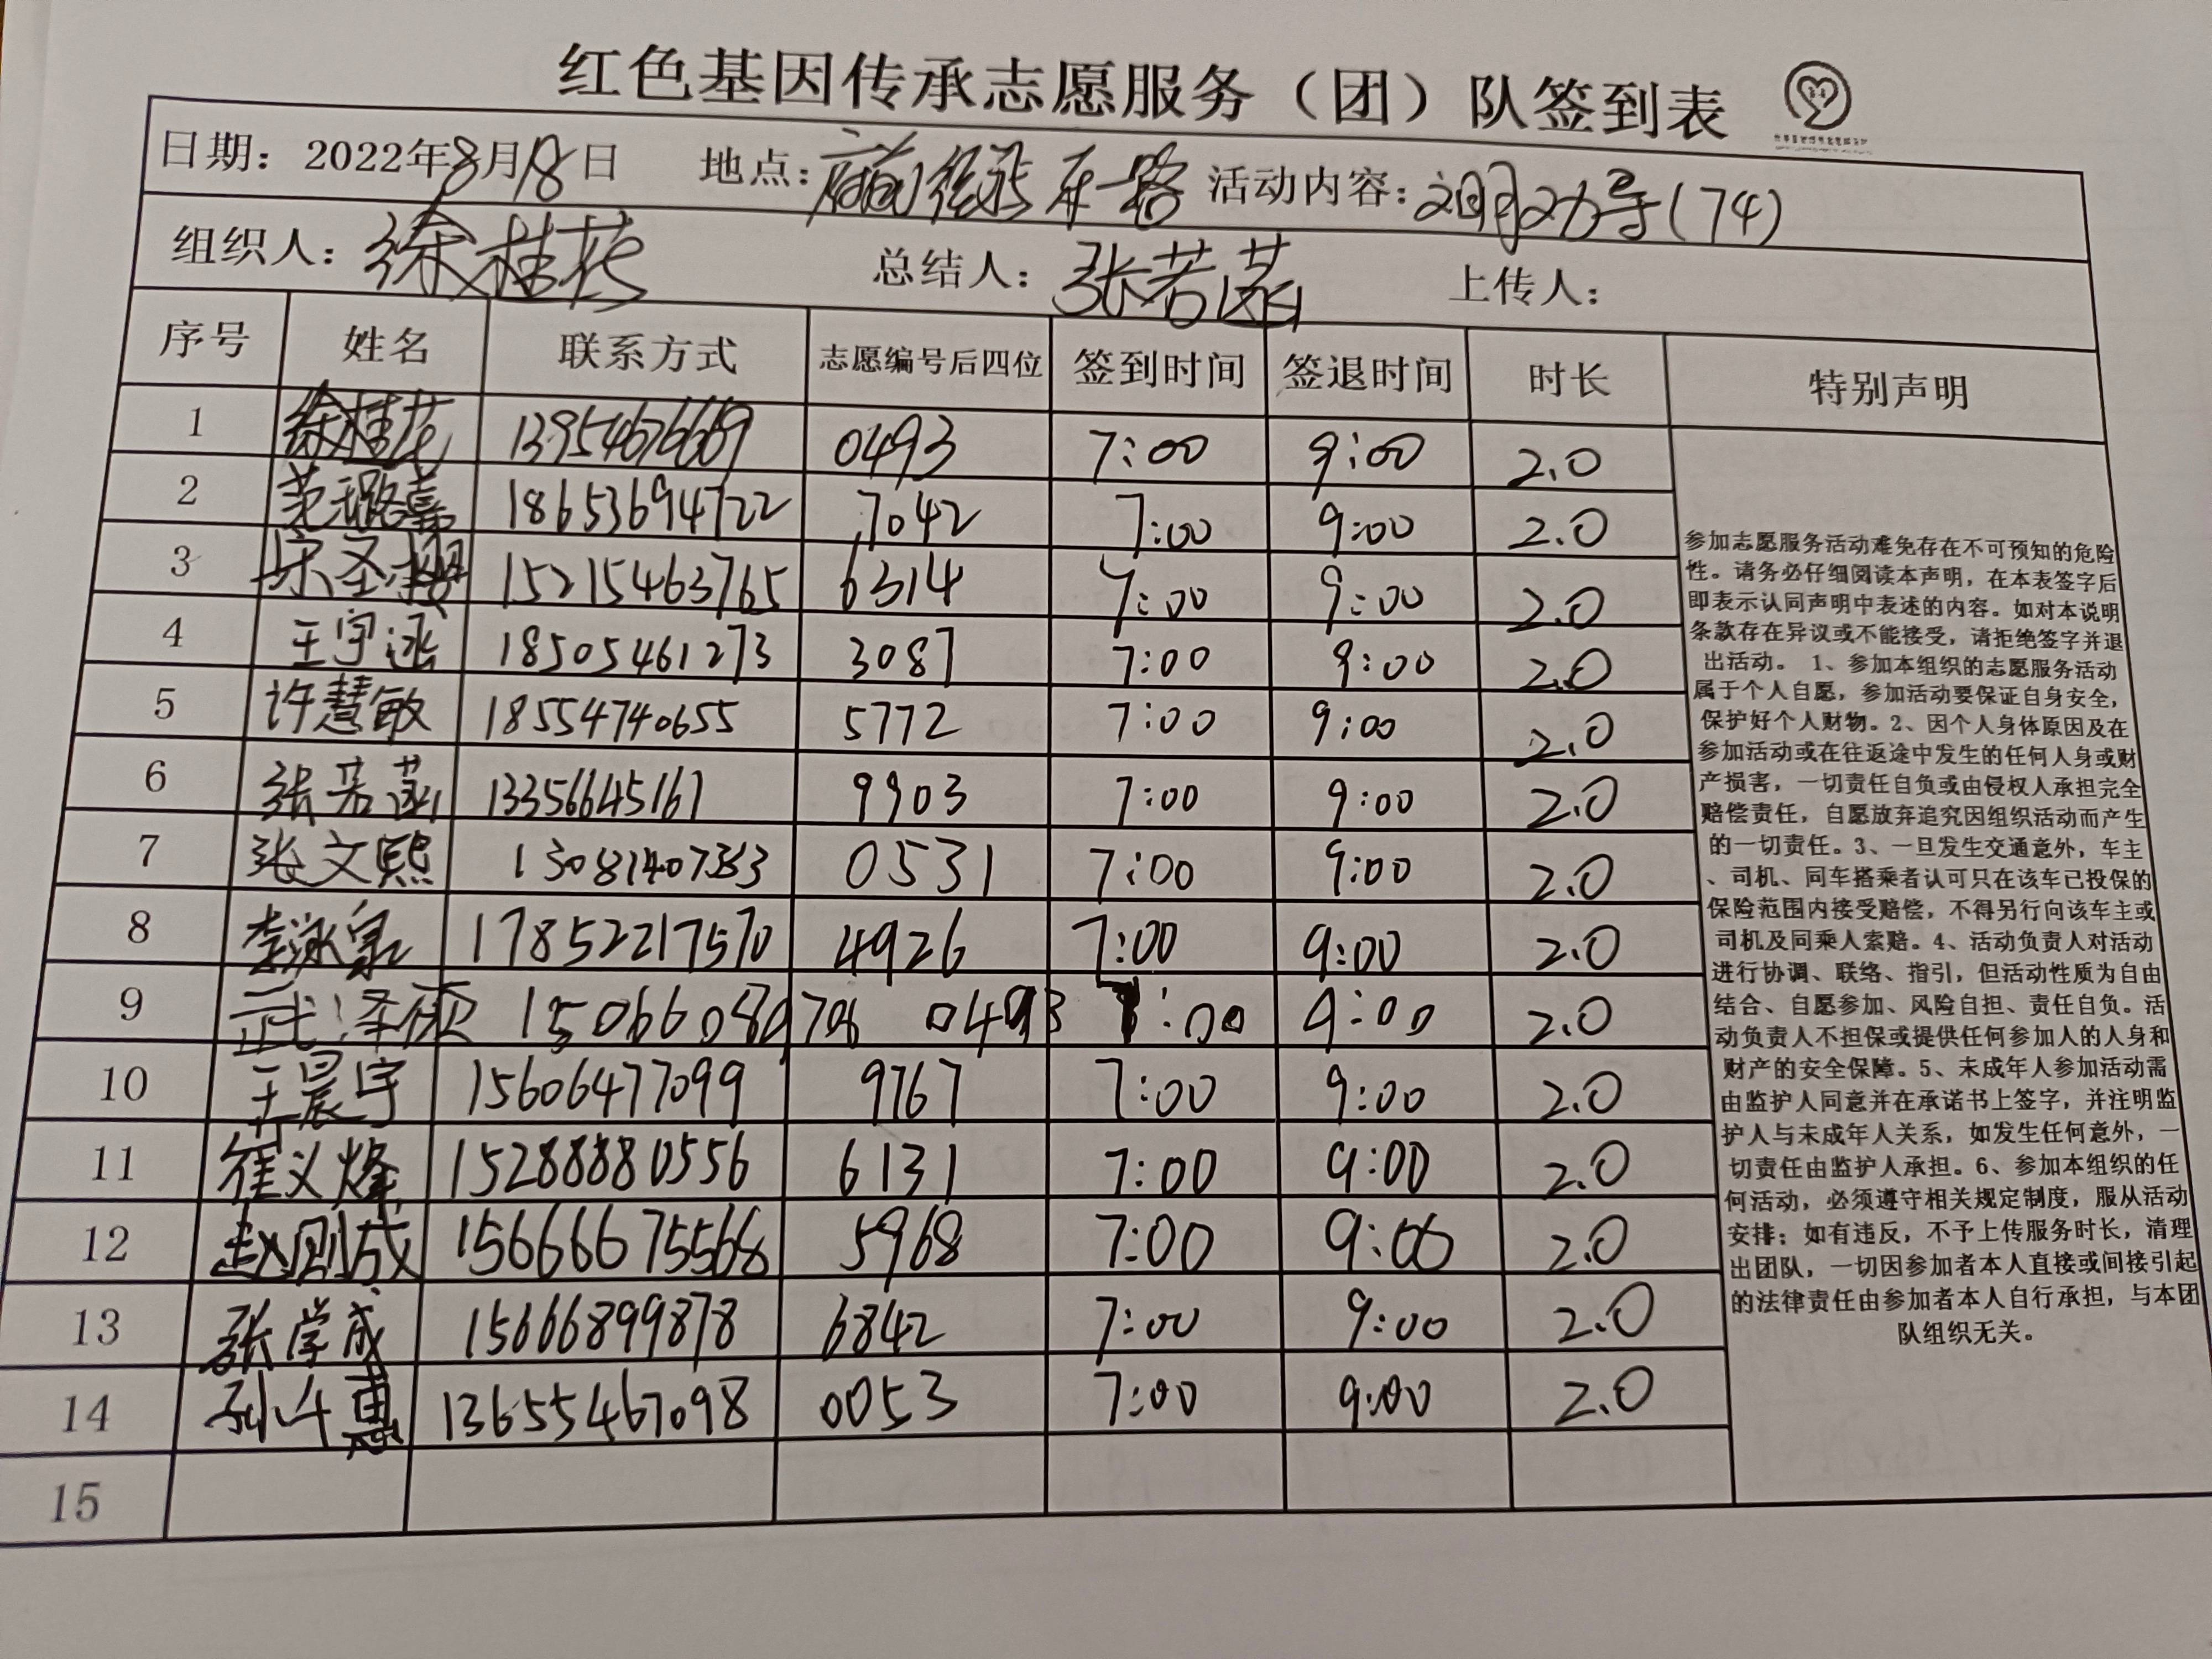 红色基因传承志愿服务（团）队签到表
日期：2022年8月18日 地点：府前街 东一路 活动内容：文明劝导(74)
组织人：徐桂花 总结人：张若菡 上传人：
序号 姓名 联系方式 志愿编号后四位 签到时间 签退时间 时长 特别声明
1 徐桂花 13954676669 0493 7:00 9:00 2.0
2 范璐嘉 18653694722 7042 7:00 9:00 2.0
3 宋圣 15215463765 6314 7:00 9:00 2.0
4 王宇涵 18505461273 3087 7:00 9:00 2.0
5 许慧敏 18554740655 5772 7:00 9:00 2.0
6 张若菡 13356645161 9903 7:00 9:00 2.0
7 张文熙 13081407353 0531 7:00 9:00 2.0
8 李泳泉 17852217570 4926 7:00 9:00 2.0
9 武泽硕 0493 7:00 9:00 2.0
10 王晨宇 15606477099 9767 7:00 9:00 2.0
11 崔义烽 15288880556 6131 7:00 9:00 2.0
12 赵刚成 15666675568 5968 7:00 9:00 2.0
13 张学成 15666899878 6842 7:00 9:00 2.0
14 孙斗惠 13655467098 0053 7:00 9:00 2.0
15
参加志愿服务活动难免存在不可预知的危险
性。请务必仔细阅读本声明，在本表签字后
即表示认同声明中表述的内容。如对本说明
条款存在异议或不能接受，请拒绝签字并退
出活动。 1、参加本组织的志愿服务活动
属于个人自愿，参加活动要保证自身安全，
保护好个人财物。2、因个人身体原因及在
参加活动或在往返途中发生的任何人身或财
产损害，一切责任自负或由侵权人承担完全
赔偿责任，自愿放弃追究因组织活动而产生
的一切责任。3、一旦发生交通意外，车主
、司机、同车搭乘者认可只在该车已投保的
保险范围内接受赔偿，不得另行向该车主或
司机及同乘人索赔。4、活动负责人对活动
进行协调、联络、指引，但活动性质为自由
结合、自愿参加、风险自担、责任自负。活
动负责人不担保或提供任何参加人的人身和
财产的安全保障。5、未成年人参加活动需
由监护人同意并在承诺书上签字，并注明监
护人与未成年人关系，如发生任何意外，一
切责任由监护人承担。6、参加本组织的任
何活动，必须遵守相关规定制度，服从活动
安排；如有违反，不予上传服务时长，清理
出团队，一切因参加者本人直接或间接引起
的法律责任由参加者本人自行承担，与本团
队组织无关。